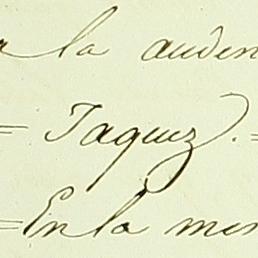 a la auden
= Taquez. =
= En la mis